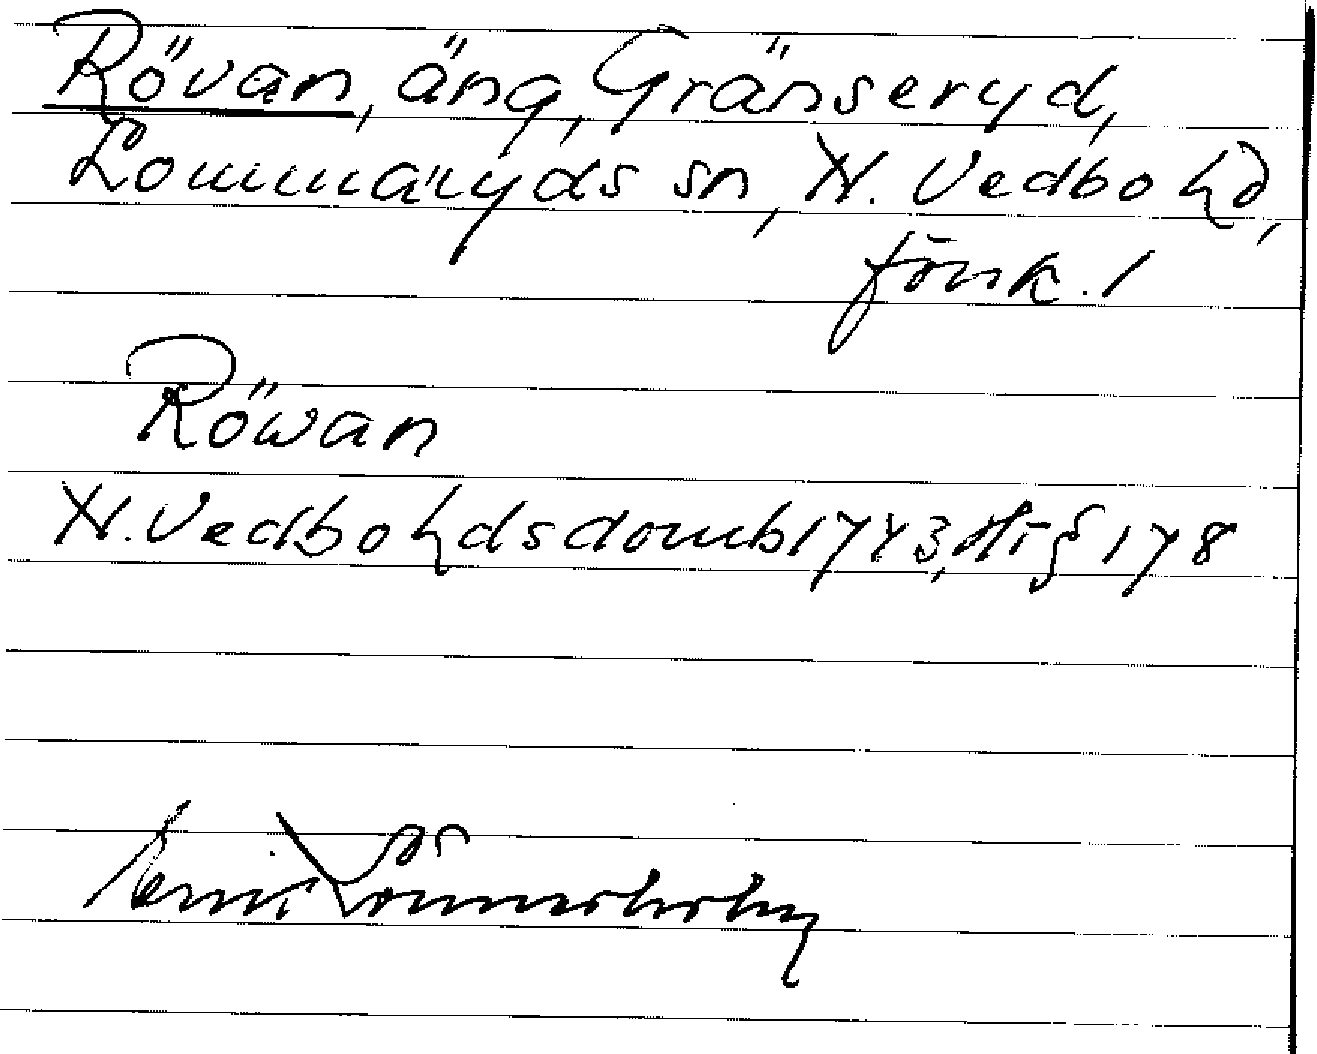 Rövan, äng, Gränseryd,
Lommaryds sn, N. Vedbo hd,
Jönk. l
Röwan
N. Vedbo hds domb 1743, Ht § 178
Erik Lönnerholm